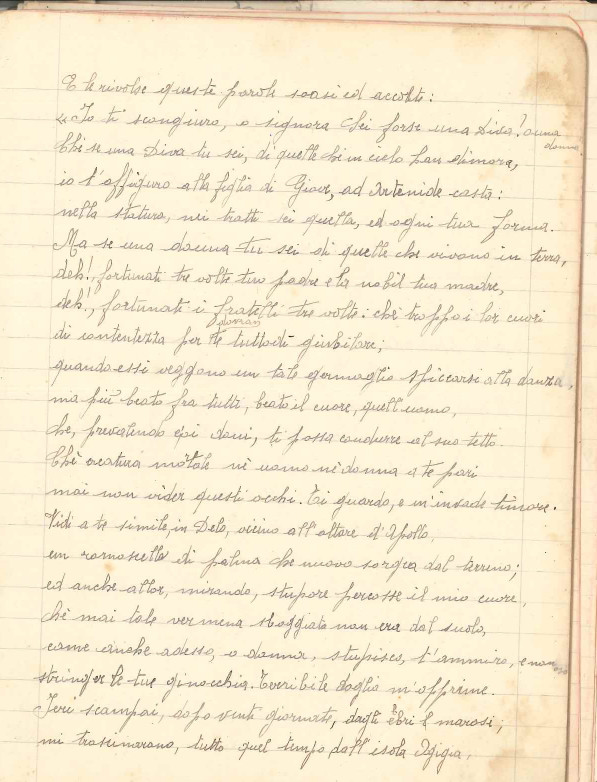 E le rivolse queste parole soavi ed accolte:
"Io ti scongiuro, o signora sei forse una Diva? o una donna
Ché se una Diva tu sei, di quelle ch'in cielo han dimora,
io t'affiguro alla figlia di Giove, ad Artenide casta:
nella statura, nei tratti sei quella, ed ogni tua forma.
Ma se una donna tu sei di quelle che vivono in terra,
deh!, fortunati tre volte tuo padre e la nobil tua madre,
deh!, fortunati i fratelli tre volte: ché troppo i lor cuori
di contentezza per te dovran tuttodì giubilare;
quando essi veggono un tale germoglio spiccarsi alla danza,
ma più beato fra tutti, beato il cuore, quell'uomo,
che, prevalendo coi doni, ti possa condurre al suo tetto.
Ché creatura mortale né uomo né donna a te pari
mai non vider questi occhi. Ti guardo, e m'invade timore.
Vidi a te simile, in Delo, vicino all'altare d'Apollo,
un ramoscello di palma che nuovo sorgea dal terreno;
ed anche allor, mirando, stupore percosse il mio cuore,
ché mai tale vermena sbocciata non era dal suolo,
come anche adesso, o donna, stupisco, t'ammiro, e non oso
stringer le tue ginocchia. Terribile doglia m'opprime.
Ieri scampai, dopo venti giornate, dagli ebri marosi;
mi trascinarono, tutto quel tempo, dall'isola Ogigia,